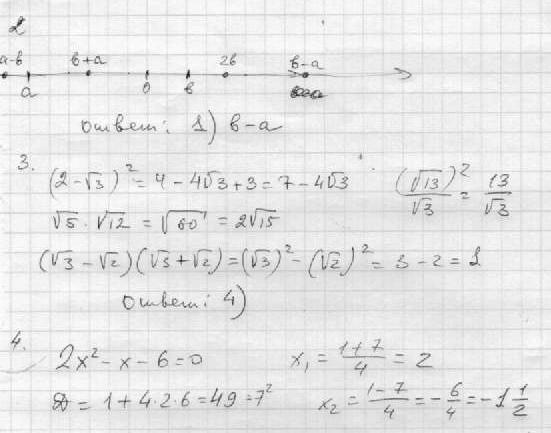 2
a-b в+a 2в в-a
a 0 в
ответ: 1) в-a
3.
(2-√3)² = 4 - 4√3 + 3 = 7 - 4√3 (√13)²/√3 = 13/√3
√5 · √12 = √60 = 2√15
(√3 - √2)(√3 + √2) = (√3)² - (√2)² = 3 - 2 = 1
ответ: 4)
4.
2x² - x - 6 = 0 x₁ = (1+7)/4 = 2
D = 1 + 4·2·6 = 49 = 7² x₂ = (1-7)/4 = -6/4 = -1 1/2